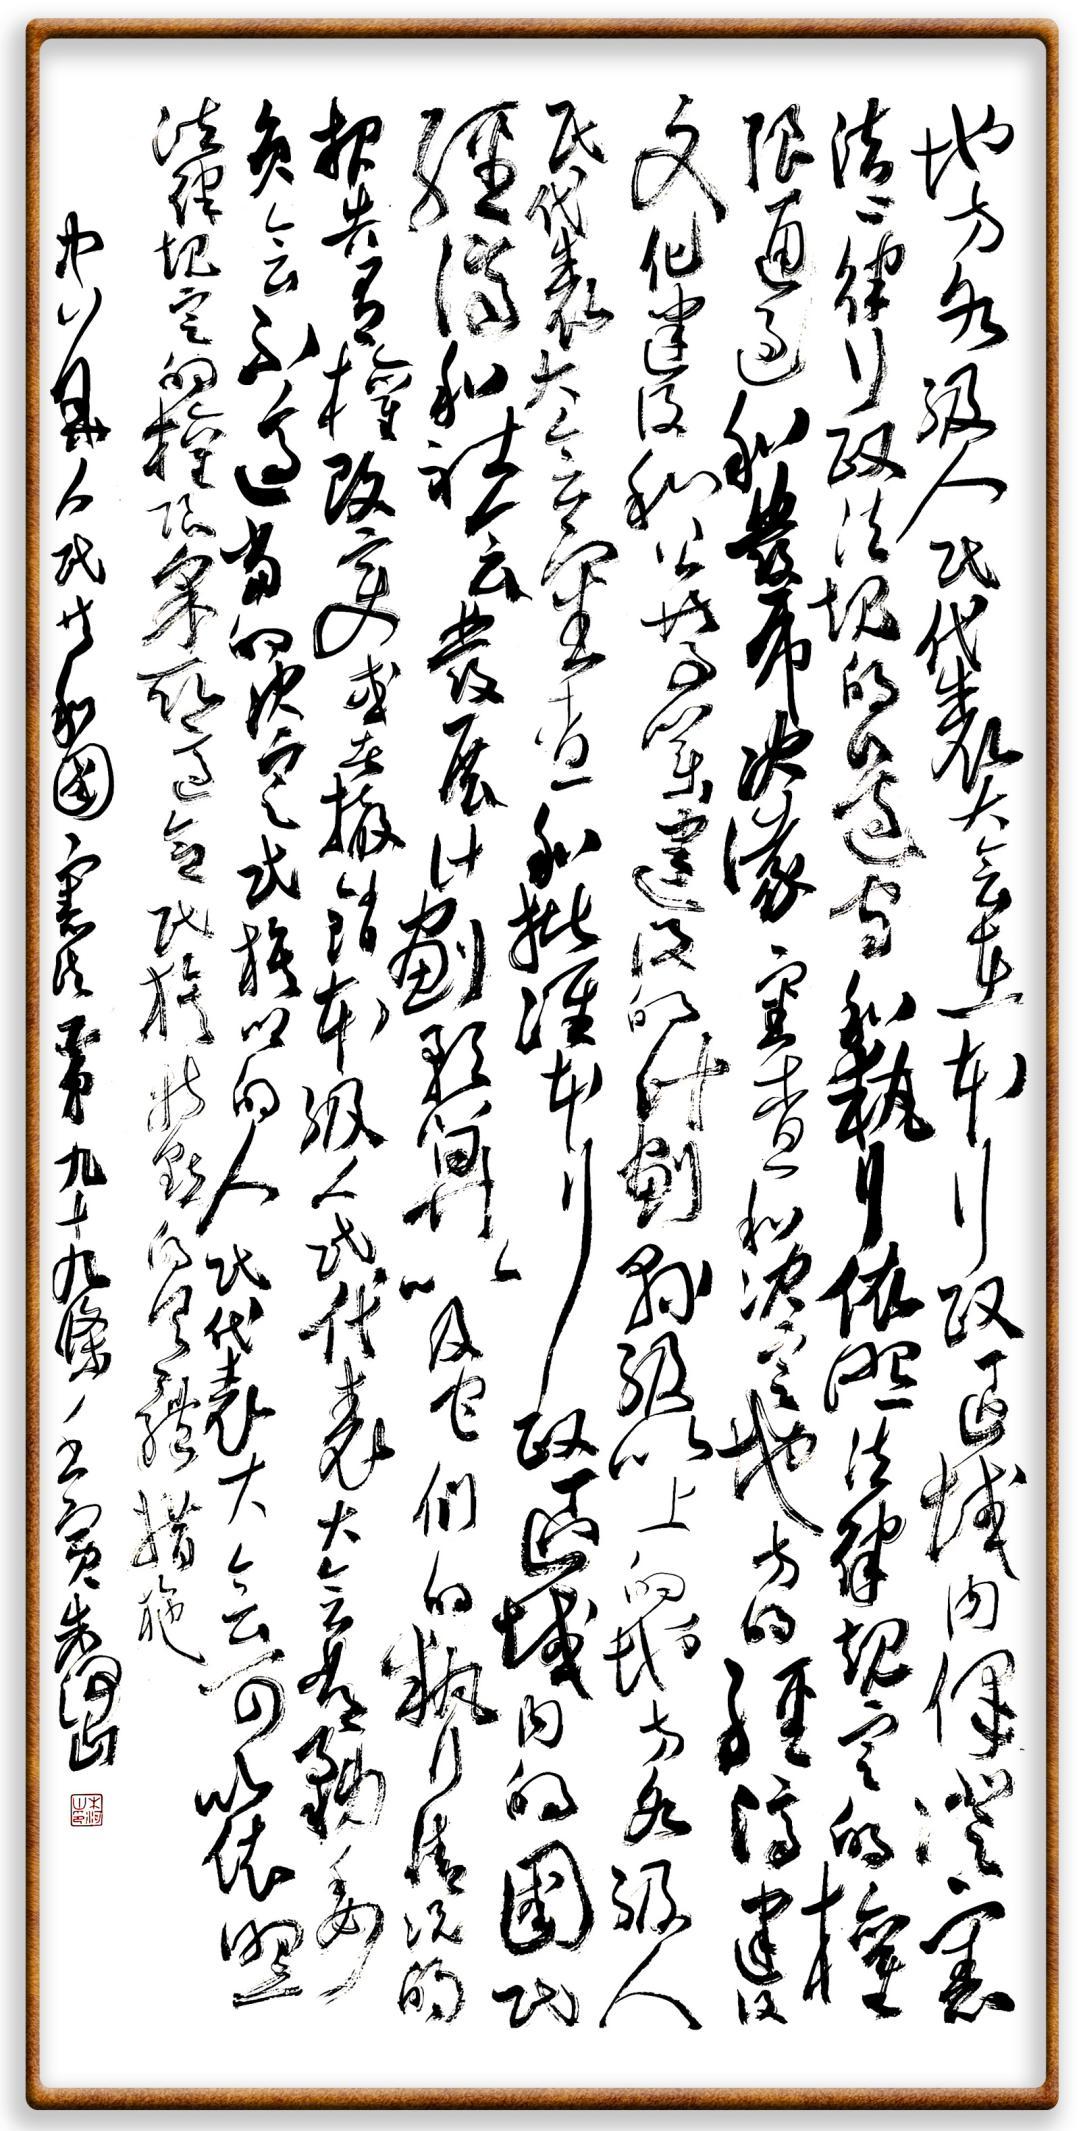 地方各级人民代表大会在本行政区域内保证宪
法、律行政法规的遵守和执行依照法律规定的權
限通过和發布决议審查和决定地方的經济建设
文化建设和公共事业建设的计劃县级以上的地方各级人
民代表大会審查和批准本行政区域内的國民
經濟和社会發展计劃预算以及它们的执行情况的
报告有權改变或者撤销本级人民代表大会常务委
员会不适当的决定民族的人民代表大会可以依照
法律规定的權限采取适合民族特點的具體措施
中华人民共和國宪法第九十九條